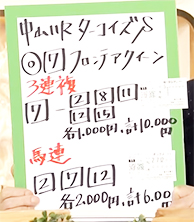 中山11R ターコイズS
◎⑦フロンテアクイーン
3連複
7-2 8 11
12 15
各1.000円計10.000円
馬連
2 7 12
各2.000円計6.00